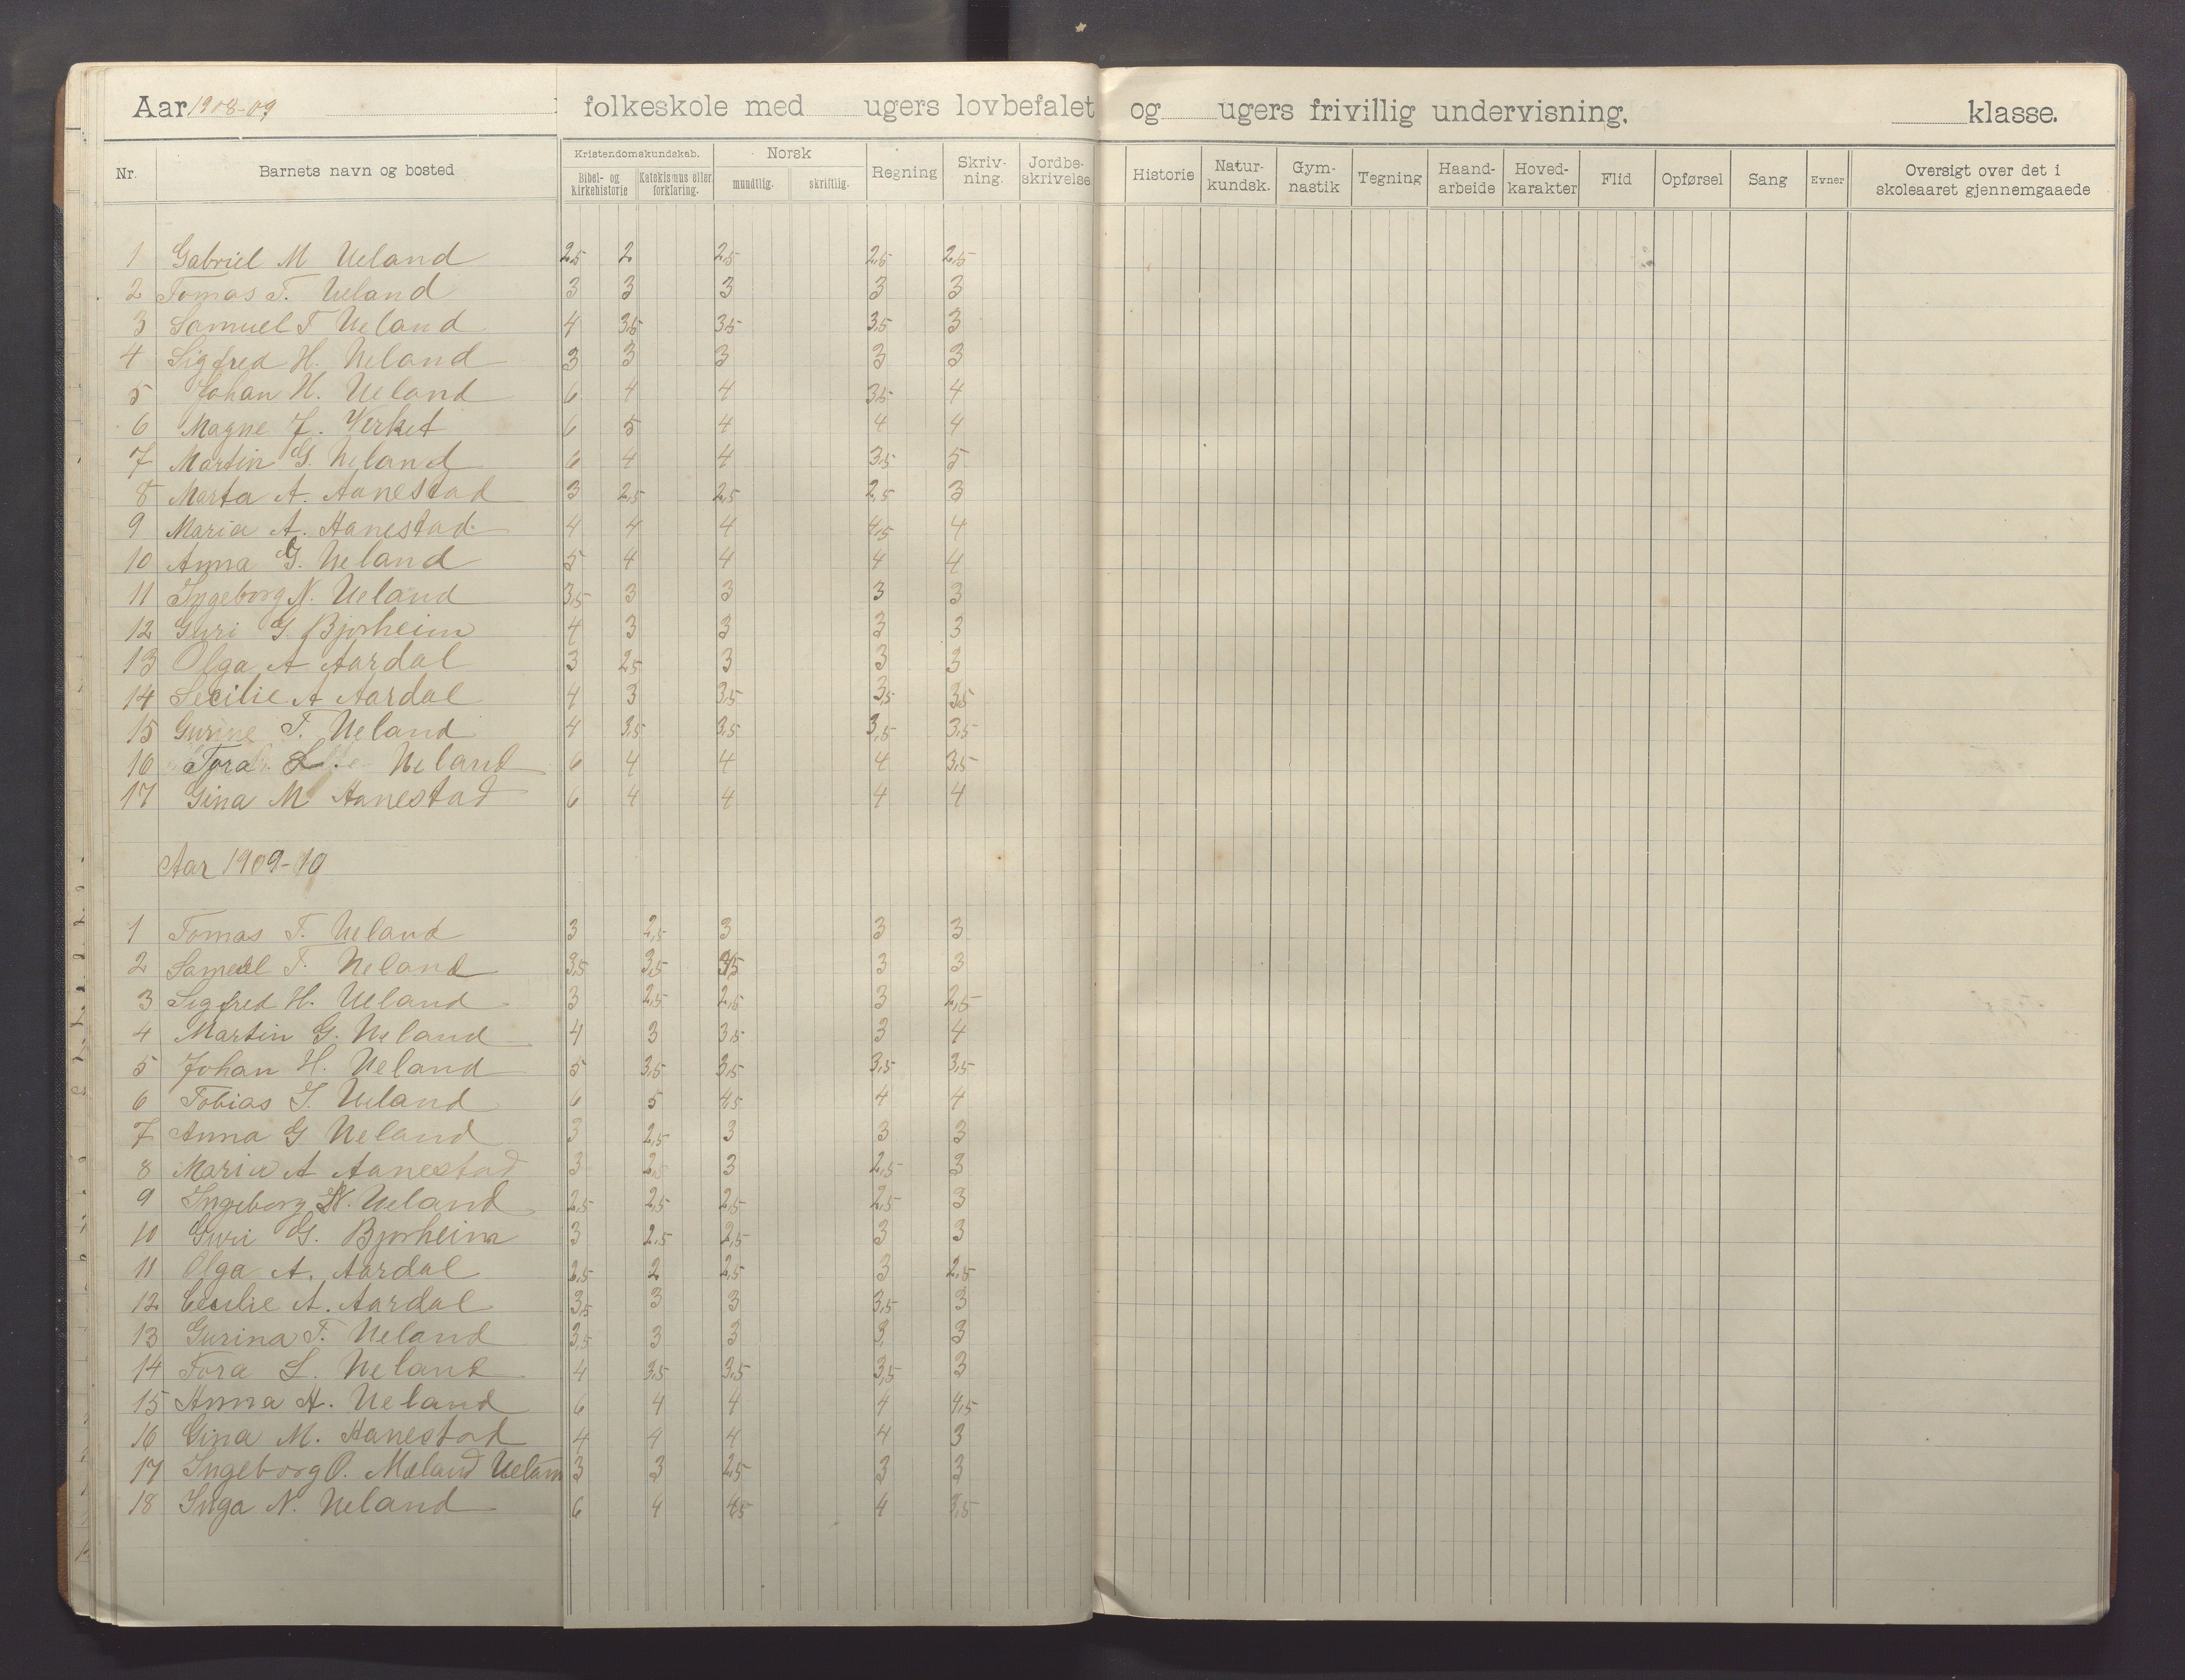 Aar 1908-09 folkeskole med ugers lovbefalet og ugers frivillig undervisning. klasse.
Nr. Barnets navn og bosted Kristendomskundskab. Bibel- og kirkehistorie Katekismus eller forklaring. Norsk mundtlig. skriftlig. Regning Skriv-ning. Jordbe-skrivelse Historie Natur-kundsk. Gym-nastik Tegning Haand-arbeide Hoved-karakter Flid Opførsel Sang Evner Oversigt over det i skoleaaret gjennemgaaede
1 Gabriel M Ueland 2,5 2 2,5 2,5 2,5
2 Tomas T. Ueland 3 3 3 3 3
3 Samuel T Ueland 4 3,5 3,5 3,5 3
4 Sigfred H. Ueland 3 3 3 3 3
5 Johan H. Ueland 6 4 4 3,5 4
6 Magne J. Verket 6 5 4 4 4
7 Martin G. Ueland 6 4 4 3,5 5
8 Marta A. Aanestad 3 2,5 2,5 2,5 3
9 Maria A. Aanestad 4 4 4 4,5 4
10 Anna G. Ueland 5 4 4 4 4
11 Ingeborg N. Ueland 3,5 3 3 3 3
12 Guri G. Bjorheim 4 3 3 3 3
13 Olga A Aardal 3 2,5 3 3 3
14 Secilie A Aardal 4 3 3,5 3,5 3,5
15 Gurine T. Ueland 4 3,5 3,5 3,5 3,5
16 Tora L. Ueland 6 4 4 4 3,5
17 Gina M Aanestad 6 4 4 4 4
Aar 1909-10
1 Tomas T. Ueland 3 2,5 3 3 3
2 Samuel T. Ueland 3,5 3,5 3,5 3 3
3 Sigfred H. Ueland 3 2,5 2,5 3 2,5
4 Martin G. Ueland 4 3 3,5 3 4
5 Johan H. Ueland 5 3,5 3,5 3,5 3,5
6 Tobias G. Ueland 6 5 4,5 4 4
7 Anna G Ueland 3 2,5 3 3 3
8 Maria A Aanestad 3 2,5 3 2,5 3
9 Ingeborg N. Ueland 2,5 2,5 2,5 2,5 3
10 Guri G. Bjorheim 3 2,5 2,5 3 3
11 Olga A. Aardal 2,5 2 2,5 3 2,5
12 Cecilie A. Aardal 3,5 3 3 3,5 3
13 Gurina T. Ueland 3,5 3 3 3 3
14 Tora L. Ueland 4 3,5 3,5 3,5 3
15 Anna H. Ueland 6 4 4 4 4,5
16 Gina M. Aanestad 4 4 4 4 3
17 Ingeborg O. Mæland Ueland 3 3 2,5 3 3
18 Inga N. Ueland 6 4 4,5 4 3,5